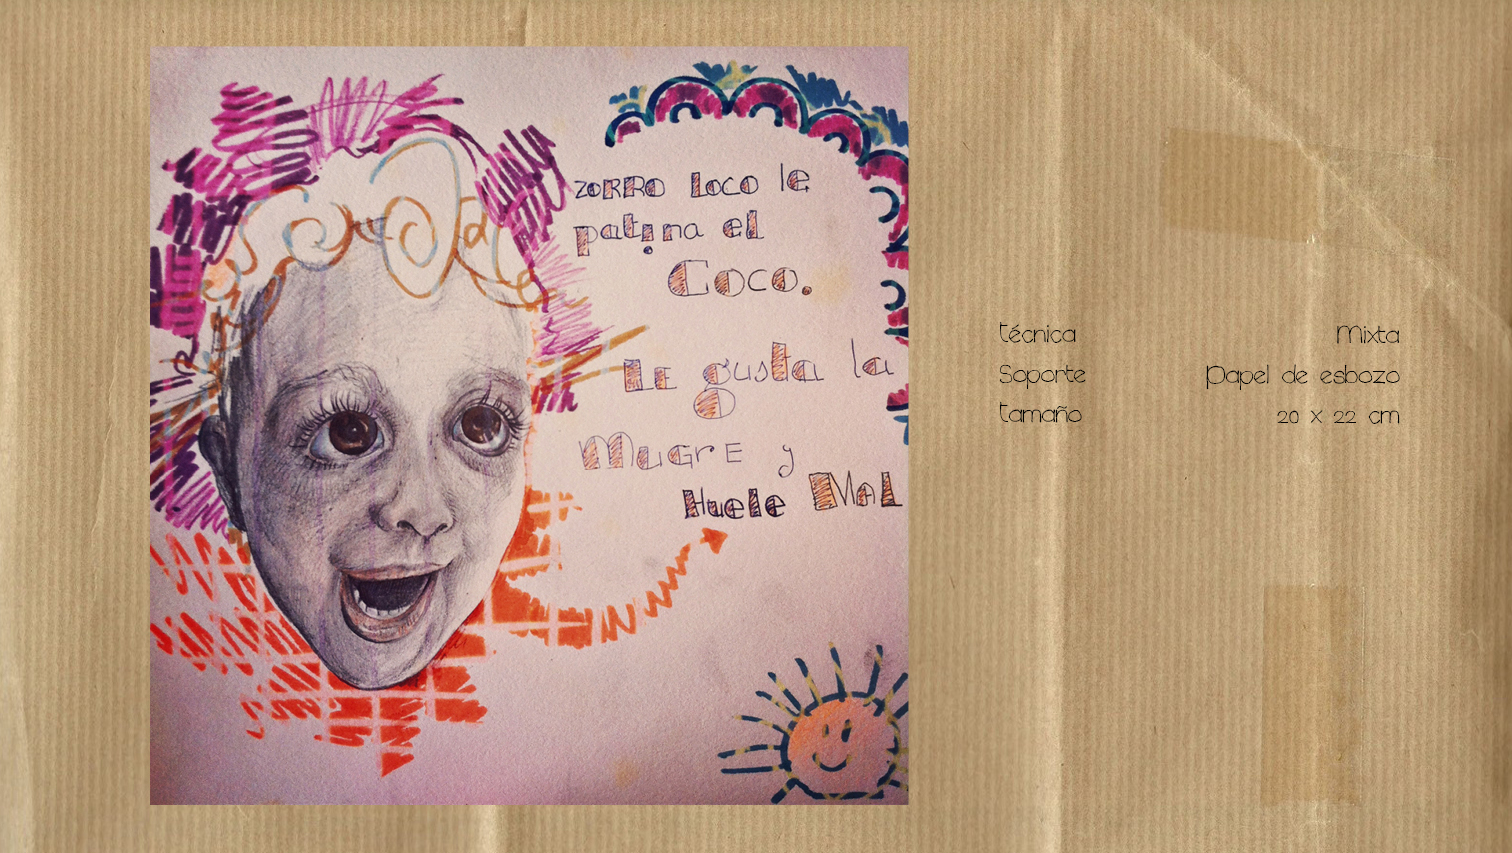 ZORRO LOCO le
patina el
COCO.
LE gusta la
MUGRE y
Huele MAL
técnica Mixta
Soporte Papel de esbozo
tamaño 20 x 22 cm